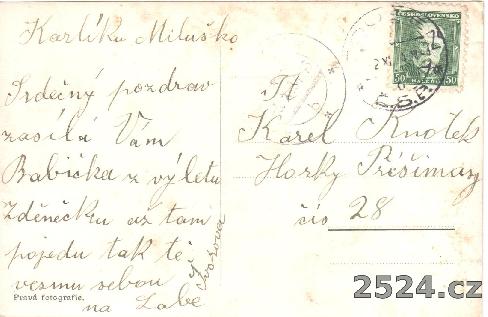 Karlíku Miluško
Srdečný pozdrav
zasílá Vám
Babička z výletu
Zděnečku až tam
pojedu tak tě
vesmu sebou
na Labe
Pravá fotografie.
ČESKOSLOVENSKO
50 50
HALÉŘŮ
Pt
Karel Knotek
Horky
čís 28
2524.cz